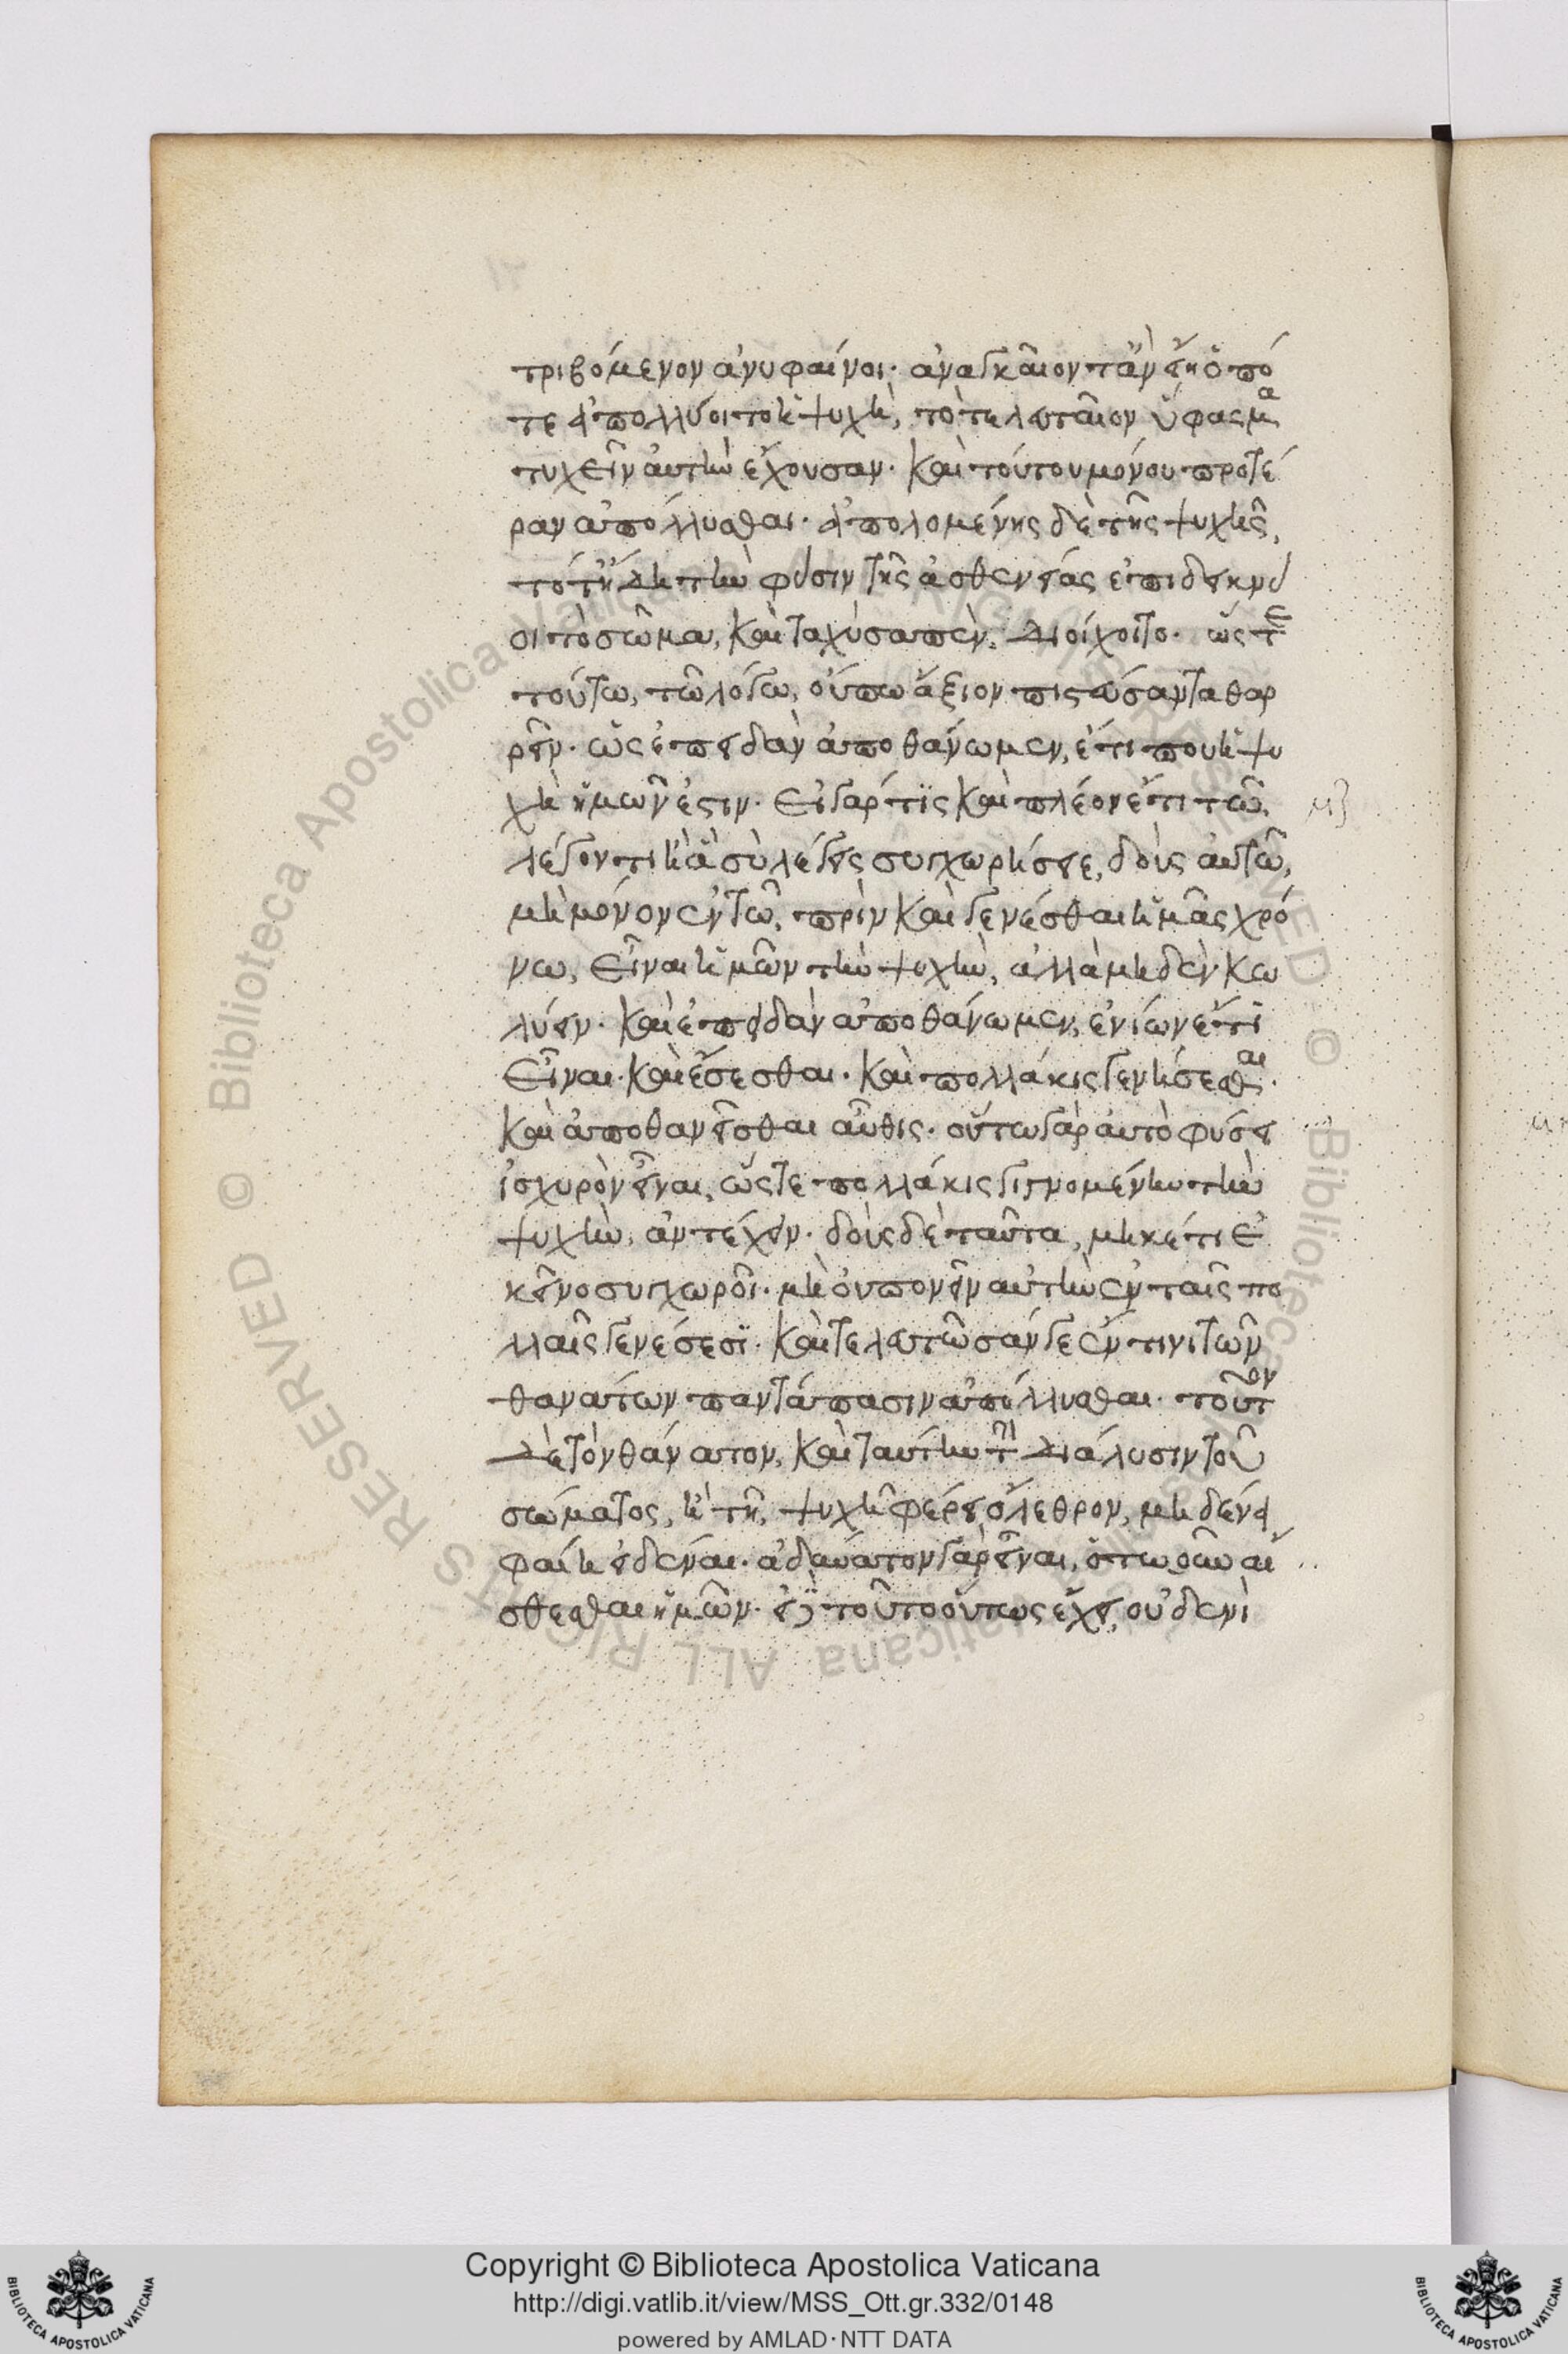 τριβόμενον ἀνυφαίνοι· ἀναγκαῖον τἂν εἴη ὁπό
τε ἀπολλύοιτο ἡ ψυχὴ, τὸ τελευταῖον ὕφασμα
τυχεῖν αὐτὴν ἔχουσαν· καὶ τούτου μόνου προτέ
ραν ἀπόλλυσθαι· ἀπολομένης δὲ τῆς ψυχῆς,
τότ' ἤδη τὴν φύσιν τῆς ἀσθενείας ἐπιδεικνύ
οι τὸ σῶμα, καὶ ταχὺ σαπὲν, διοίχοιτο· ὥστε
τούτω, τῶ λόγω, οὔπω ἄξιον πιστεύσαντα θαρ
ρεῖν· ὡς ἐπειδὰν ἀποθάνωμεν, ἔτι που ἡ ψυ
χὴ ἡμῶν ἐστιν· εἰ γάρ τϊς καὶ πλέον ἔτι τῶ
λέγοντι ἢ ἃ σὺ λέγεις συγχωρήσειε, δοὺς αὐτῶ,
μὴ μόνον ἐν τῶ πρὶν καὶ γενέσθαι ἡμᾶς χρό
νω, εἶναι ἡμῶν τὴν ψυχὴν, ἀλλὰ μηδὲν κω
λύειν· καὶ ἐπειδὰν ἀποθάνωμεν, ἐνίων ἔτι
εἶναι· καὶ ἔσεσθαι· καὶ πολλάκις γενήσεσθαι·
καὶ ἀποθανεῖσθαι αὖθις· οὕτω γὰρ αὐτὸ φύσει
ἰσχυρὸν εἶναι, ὥστε πολλάκις γιγνομένην τὴν
ψυχὴν, ἀντέχειν· δοὺς δὲ ταῦτα, μηκέτι ἐ
κεῖνο συγχωροῖ· μὴ οὐ πονεῖν αὐτὴν ἐν ταῖς πο
λλαῖς γενέσεσϊ· καὶ τελευτῶσάν γε ἔν τινι τῶν
θανάτων παντάπασιν ἀπόλλυσθαι· τοῦτον
δὲ τὸν θάνατον, καὶ ταύτην τὴν διάλυσιν τοῦ
σώματος, ἣ τῆ, ψυχῆ φέρει ὄλεθρον, μηδένα
φαίη εἰδέναι· ἀδύνατον γὰρ εἶναι, ὅτω οῦν αἴ
σθεσθαι ἡμῶν· εἰ δὲ τοῦτο οὕτως ἔχει, οὐδενὶ
Copyright © Biblioteca Apostolica Vaticana
http://digi.vatlib.it/view/MSS_Ott.gr.332/0148
powered by AMLAD·NTT DATA